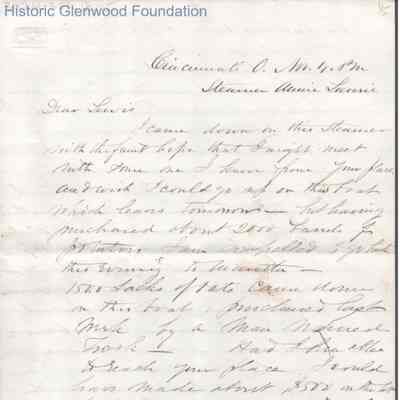 Historic Glenwood Foundation
Cincinnati O. Nov. 4. PM
Steamer Annie Laurie
Dear Lewis
I came down on this Steamer
with the faint hope that I might meet
with some one I knew from your place
and wish I could go up on this boat
which leaves tomorrow — but having
purchased about 2000 barrels of
potatoes I am compelled to go back
this evening to Marietta —
1500 Sacks of oats came down
on this boat, purchased last
Week by a Man Named
— Had I been able
to reach your place I would
have made about $500 in the